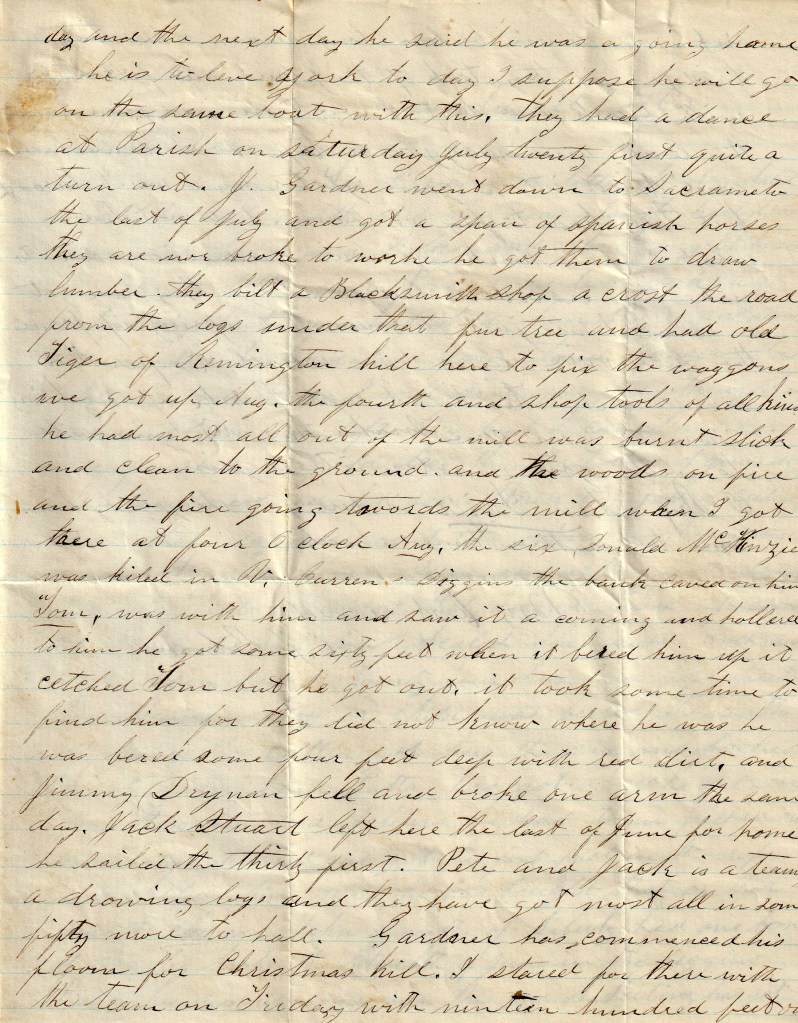 day and the next day he said he was a going home
he is to leve york to day I suppose he will go
on the same boat with this. they had a dance
at Parish on saturday July twenty first quite a
turn out. J. Gardner went down to Sacrameto
the last of July and got a span of spanish horses
they are not broke to worke he got them to draw
lumber. they bilt a Blacksmith shop a crost the road
from the logs under that fur tree and had old
Tiger of Remington hill here to fix the waggons
we got up Aug. the fourth and shop tools of all kins
he had most all out of the mill was burnt slick
and clean to the ground. and the woods on fire
and the fire going towords the mill when I got
there at four O clock Aug. the six Donald McKinzie
was kiled in Curren s Diggins the bank caved on him
Tom, was with him and saw it a coming and hollered
to him he got some sixty feet when it bered him up it
cetched Tom but he got out. it took some time to
find him for they did not know where he was he
was bered some four feet deep with red dirt. and
Jimmy Drynan fell and broke one arm the sam
day. Jack Stuart left here the last of June for home
he sailed the thirty first. Pete and Jack is a team
a drowing logs and they have got most all in som
fifty more to hall. Gardner has commenced his
floom for Christmas hill. I stared for there with
the team on Friday with ninteen hundred feet